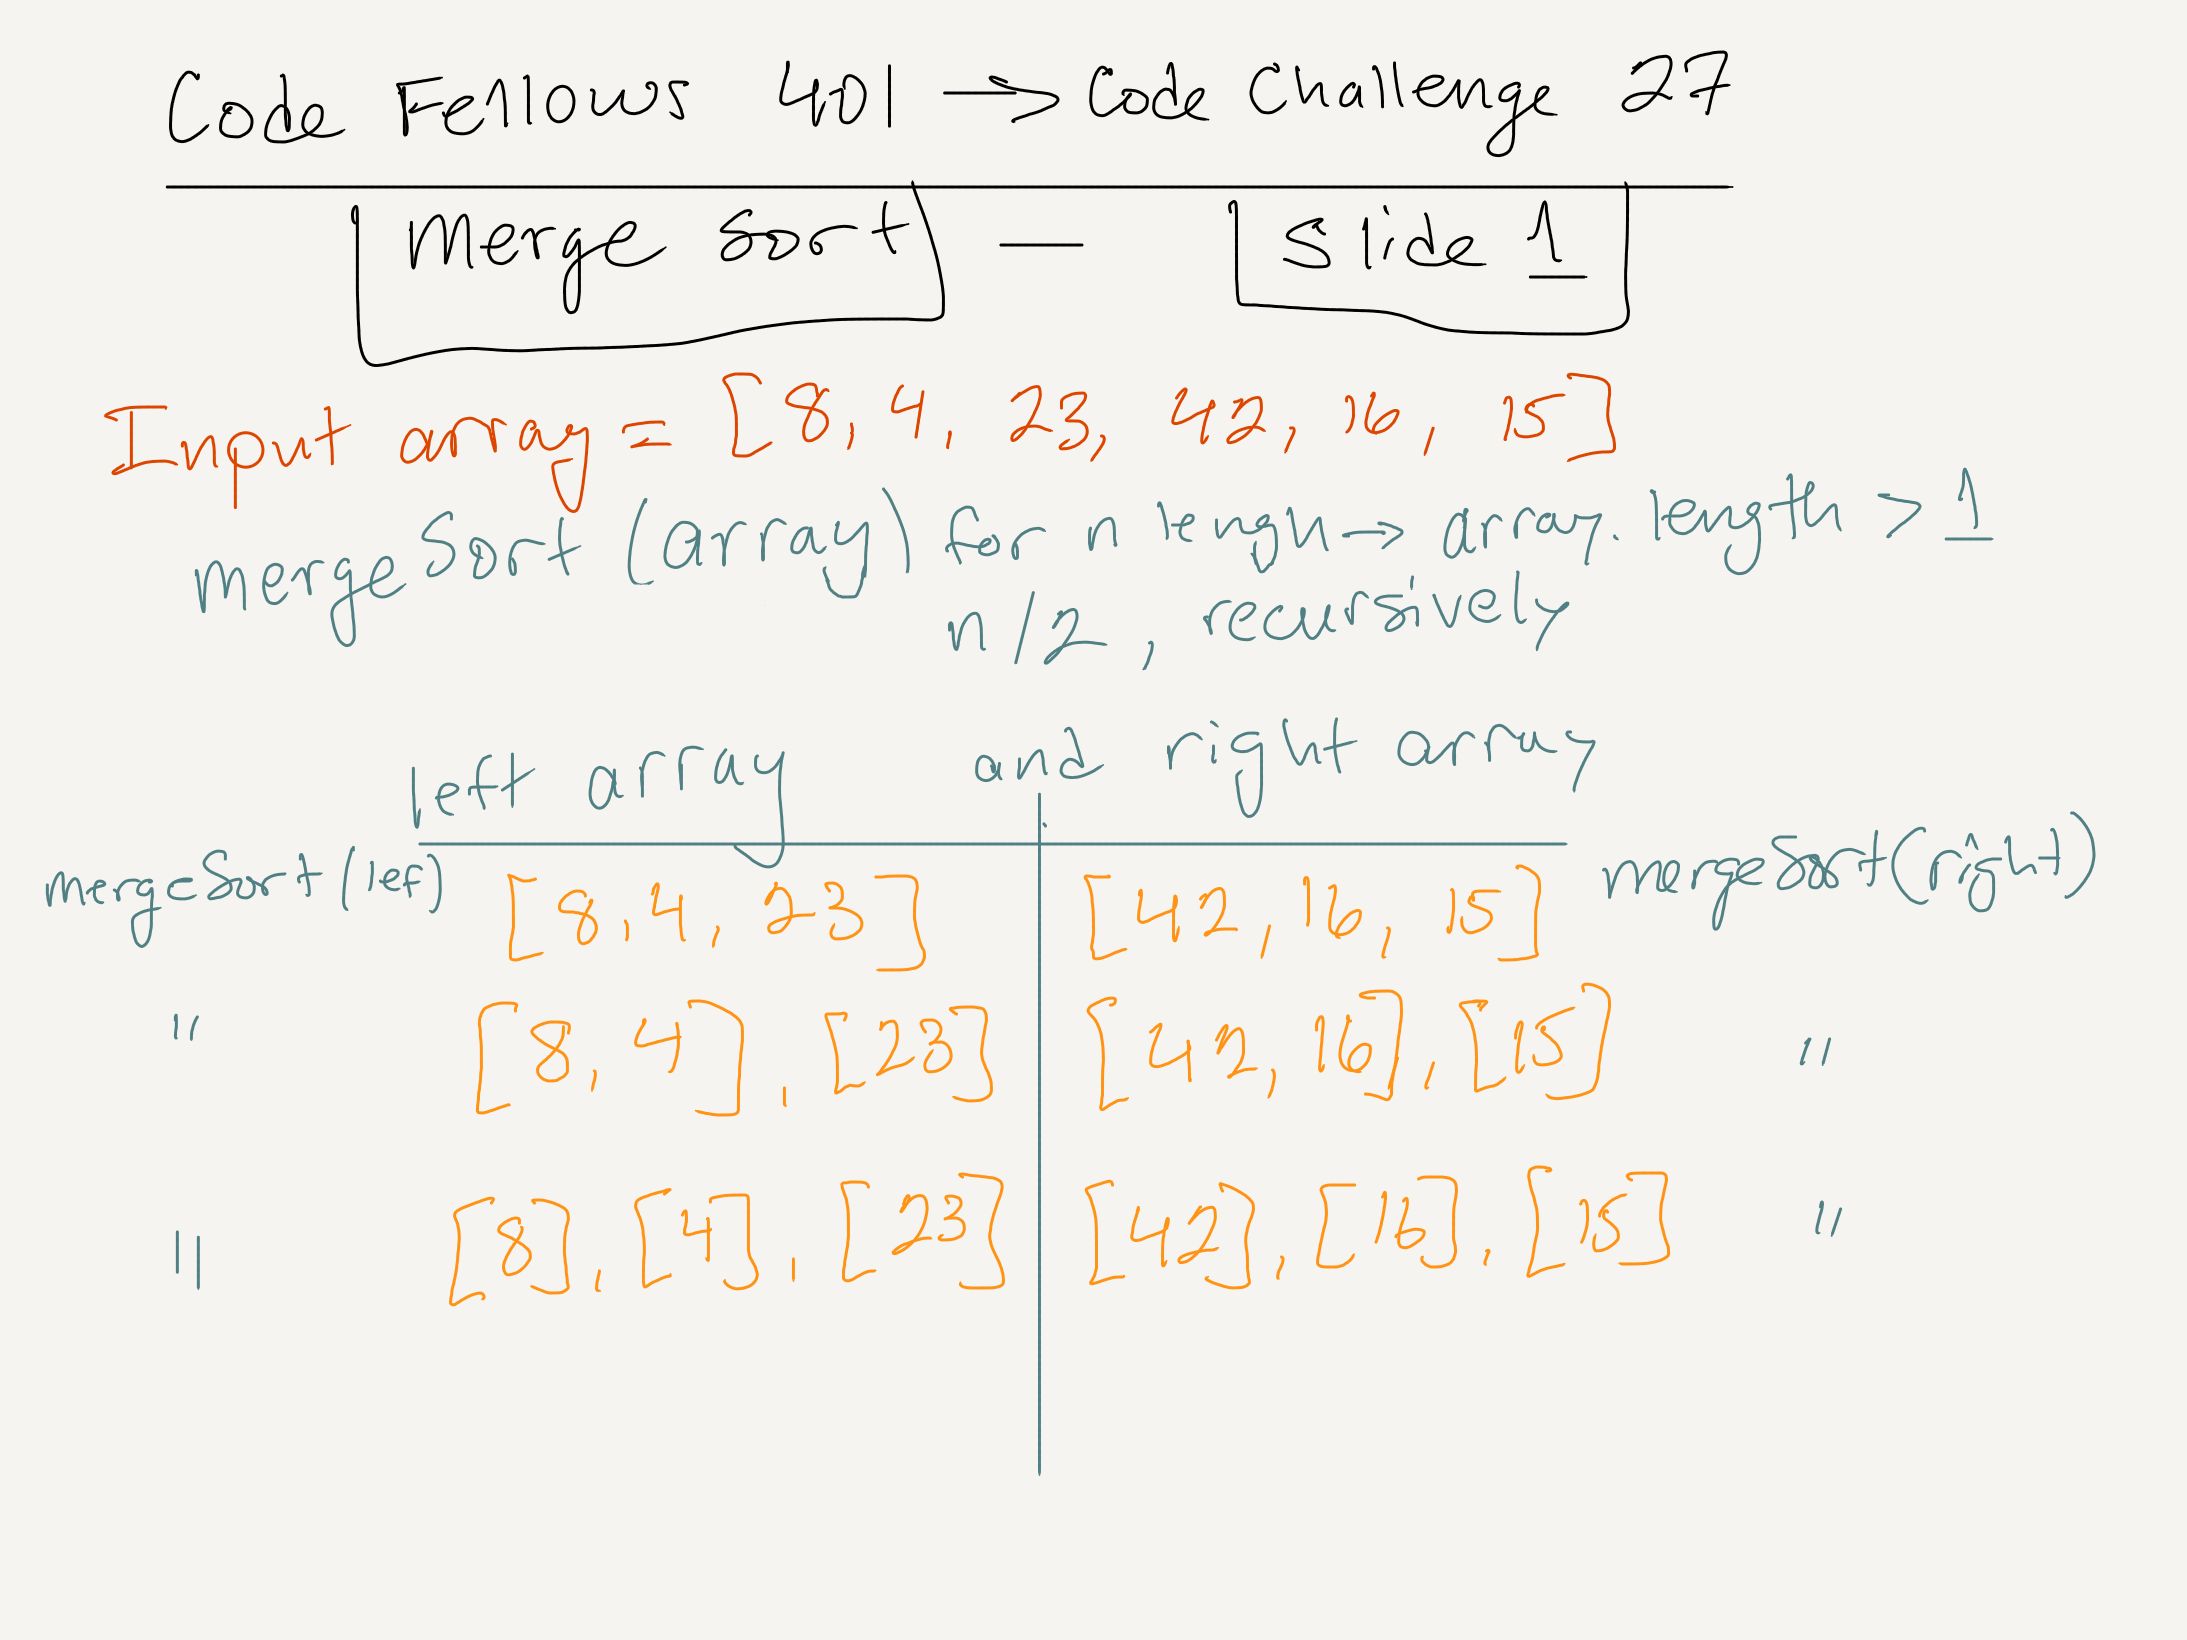 Code Fellows 401 → Code Challenge 27
Merge Sort — Slide 1
Input array = [8, 4, 23, 42, 16, 15]
mergeSort (array) for n lengh → array.length > 1
n/2, recursively
left array and right array
mergeSort (lef) [8, 4, 23] [42, 16, 15] mergeSort(right)
" [8, 4], [23] [42, 16], [15] "
" [8], [4], [23] [42], [16], [15] "